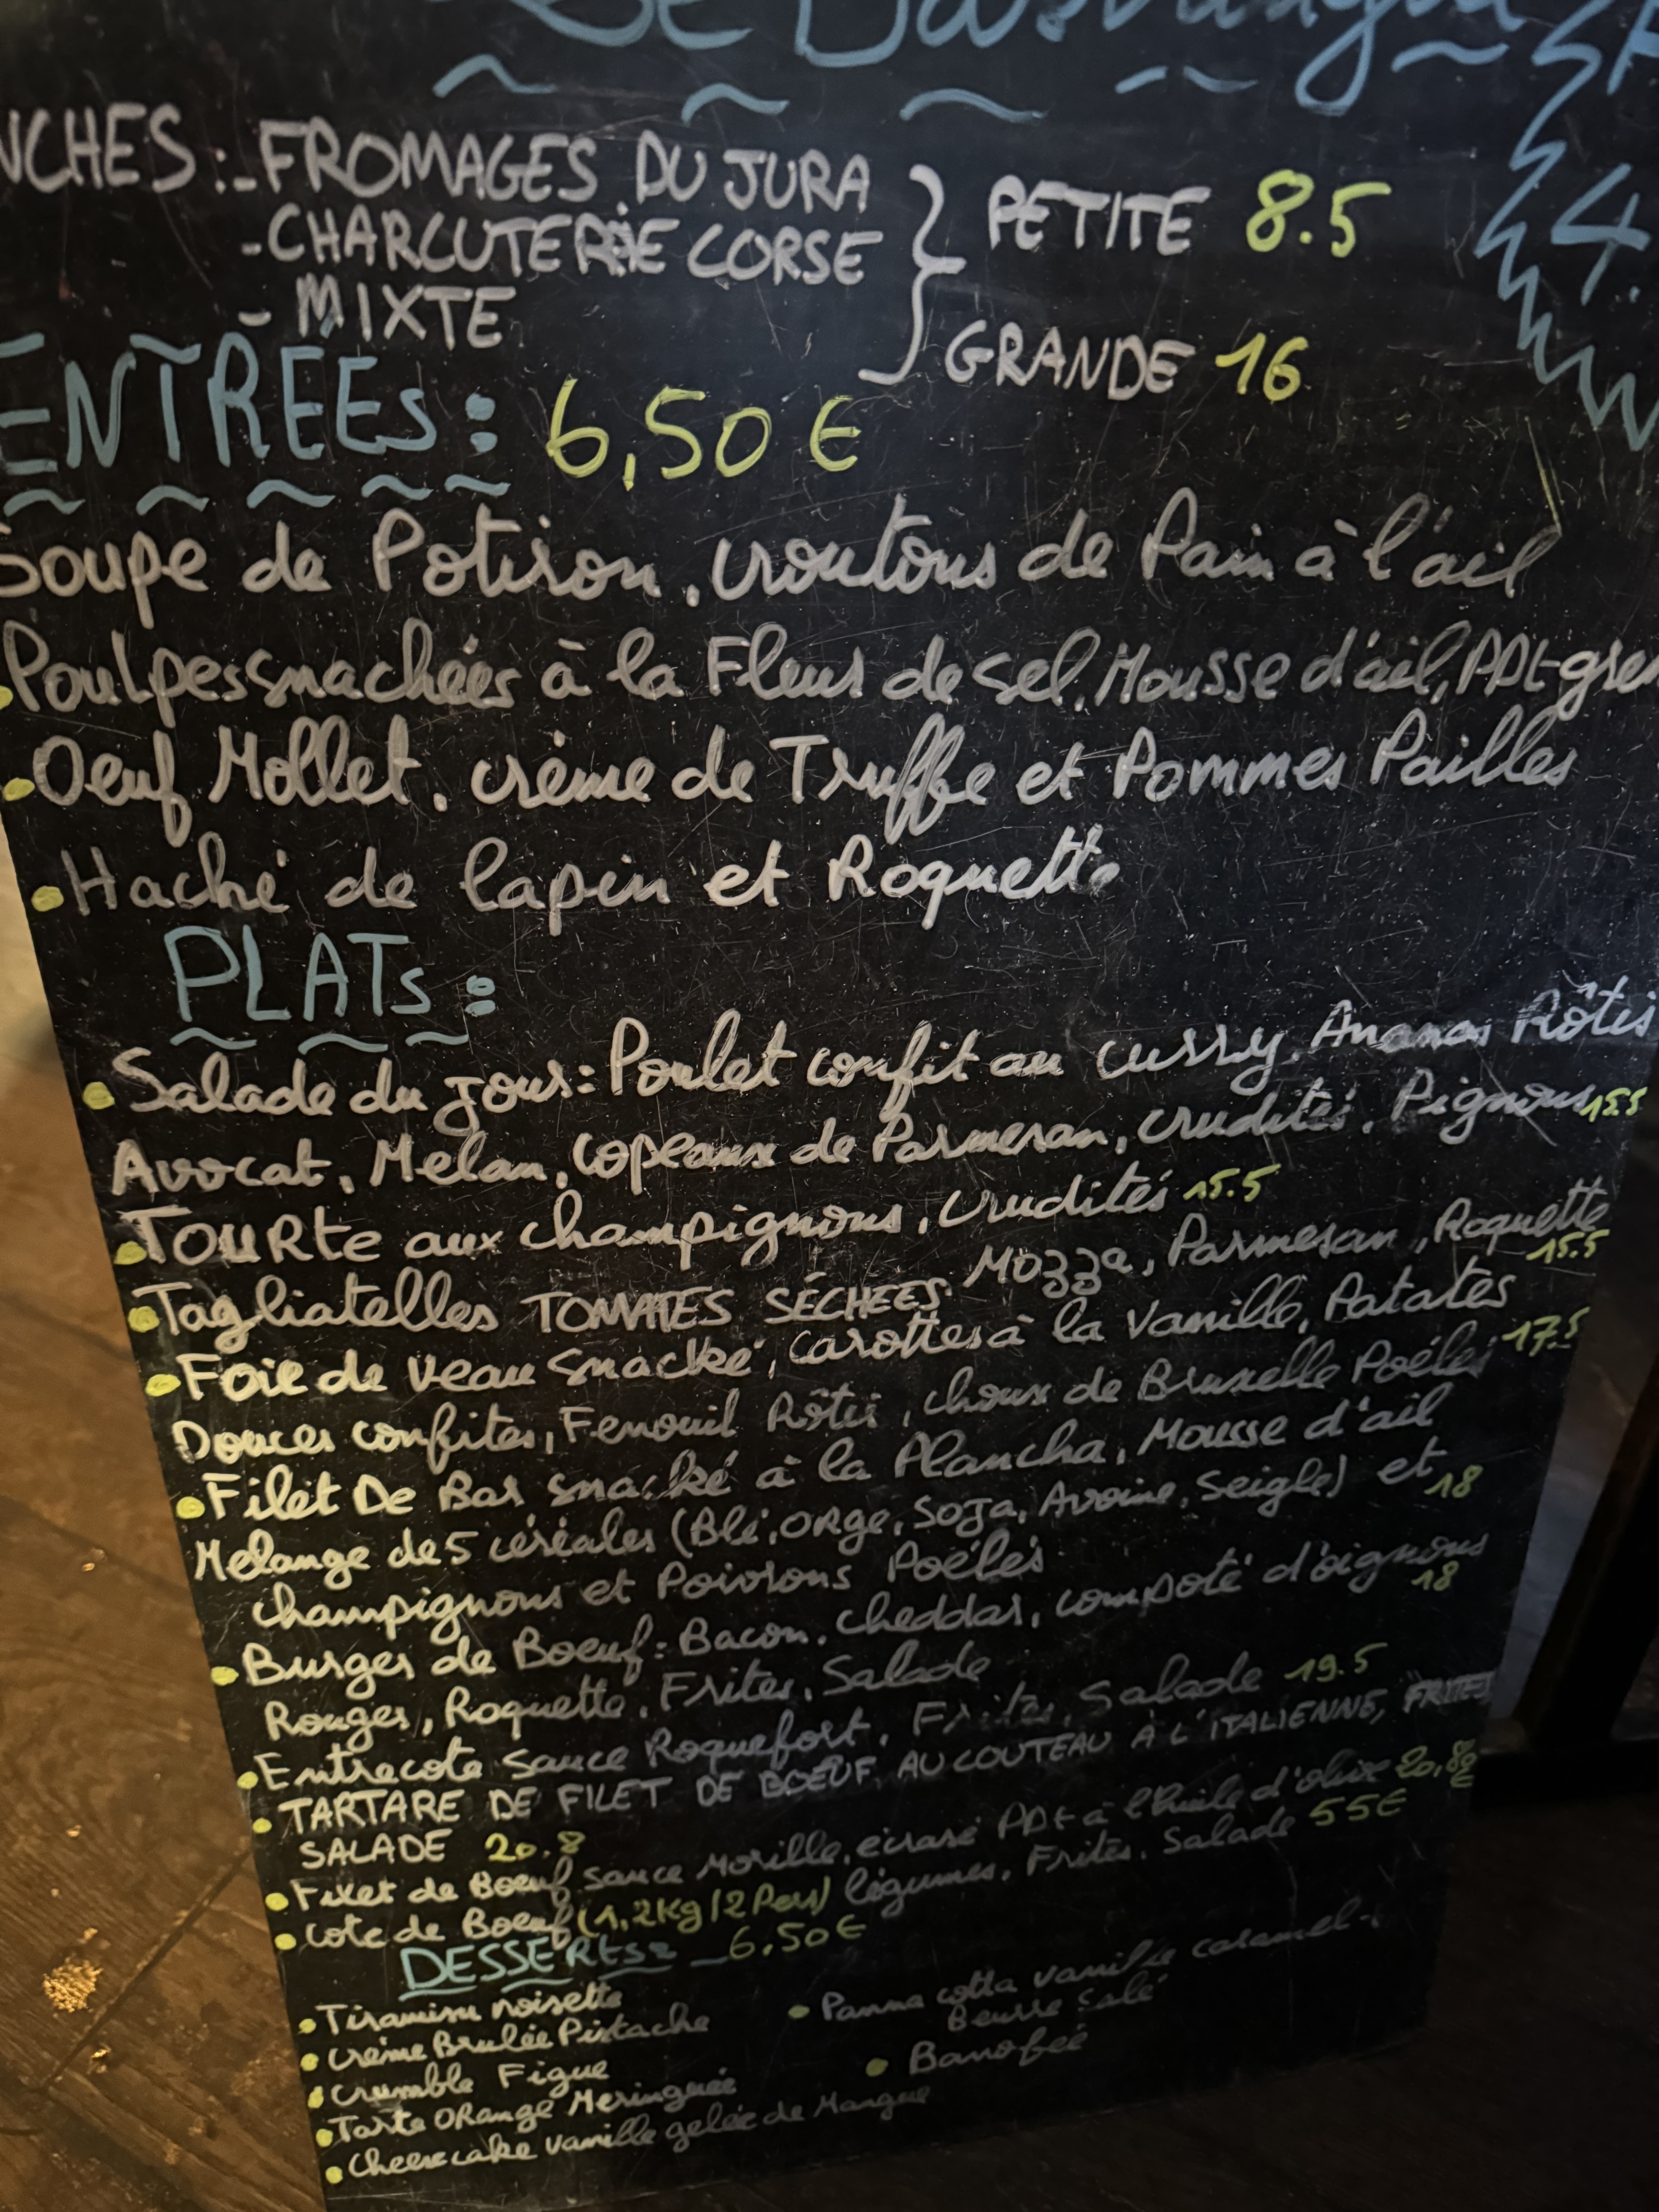 NCHES :- FROMAGES DU JURA
- CHARCUTERIE CORSE
- MIXTE
PETITE 8.5
GRANDE 16
4.
ENTREES : 6,50 €
Soupe de Potiron, croutons de Pain à l'ail
Poulpes snachées à la Fleur de sel, Mousse d'ail, PDt gren
Oeuf Mollet, crème de Truffe et Pommes Pailles
Haché de lapin et Roquette
PLATs :
Salade du jour : Poulet confit au curry, Ananas Rôtis
Avocat, Melon, copeaux de Parmesan, crudités, Pignons 15.5
TOURte aux champignons, crudités 15.5
Tagliatelles TOMATES SÉCHEES, Mozza, Parmesan, Roquette 15.5
Foie de veau snacké, carottes à la Vanille, Patates
Douces confites, Fenouil Rôti, choux de Bruxelle Poélés 17.5
Filet De Bar snacké à la Plancha, Mousse d'ail
Mélange de 5 céréales (Blé, ORge, Soja, Avoine, Seigle) et 18
champignons et Poivrons Poélés
Burger de Boeuf : Bacon, cheddar, compoté d'oignons 18
Rouges, Roquette, Frites, Salade
Entrecote sauce Roquefort, Frites, Salade 19.5
TARTARE DE FILET DE BOEUF AU COUTEAU À L'ITALIENNE, FRITES
SALADE 20.8
Filet de Boeuf sauce Morille, écrasé PDt à l'huile d'olive 20,80 €
Cote de Boeuf (1,2kg/2Pers) légumes, Frites, Salade 55€
DESSERts : 6.50€
Tiramisu noisette
crème Brulée Pistache
crumble Figue
Tarte ORange Meringuée
cheesecake vanille gelée de Mangue
Panna cotta vanille caramel
Beurre Salé
Banofeé